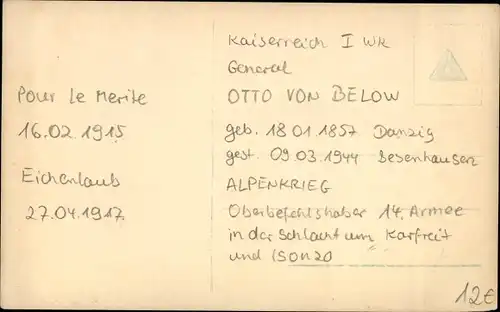 Pour le Merite
16.02.1915
Eichenlaub
27.04.1917
Kaiserreich I WK
General
OTTO VON BELOW
geb. 18 01.1857 Danzig
gest. 09.03.1944 Besenhausen
ALPENKRIEG
Oberbefehlshaber 14. Armee
in der Schlacht um Karfreit
und ISONZO
12€